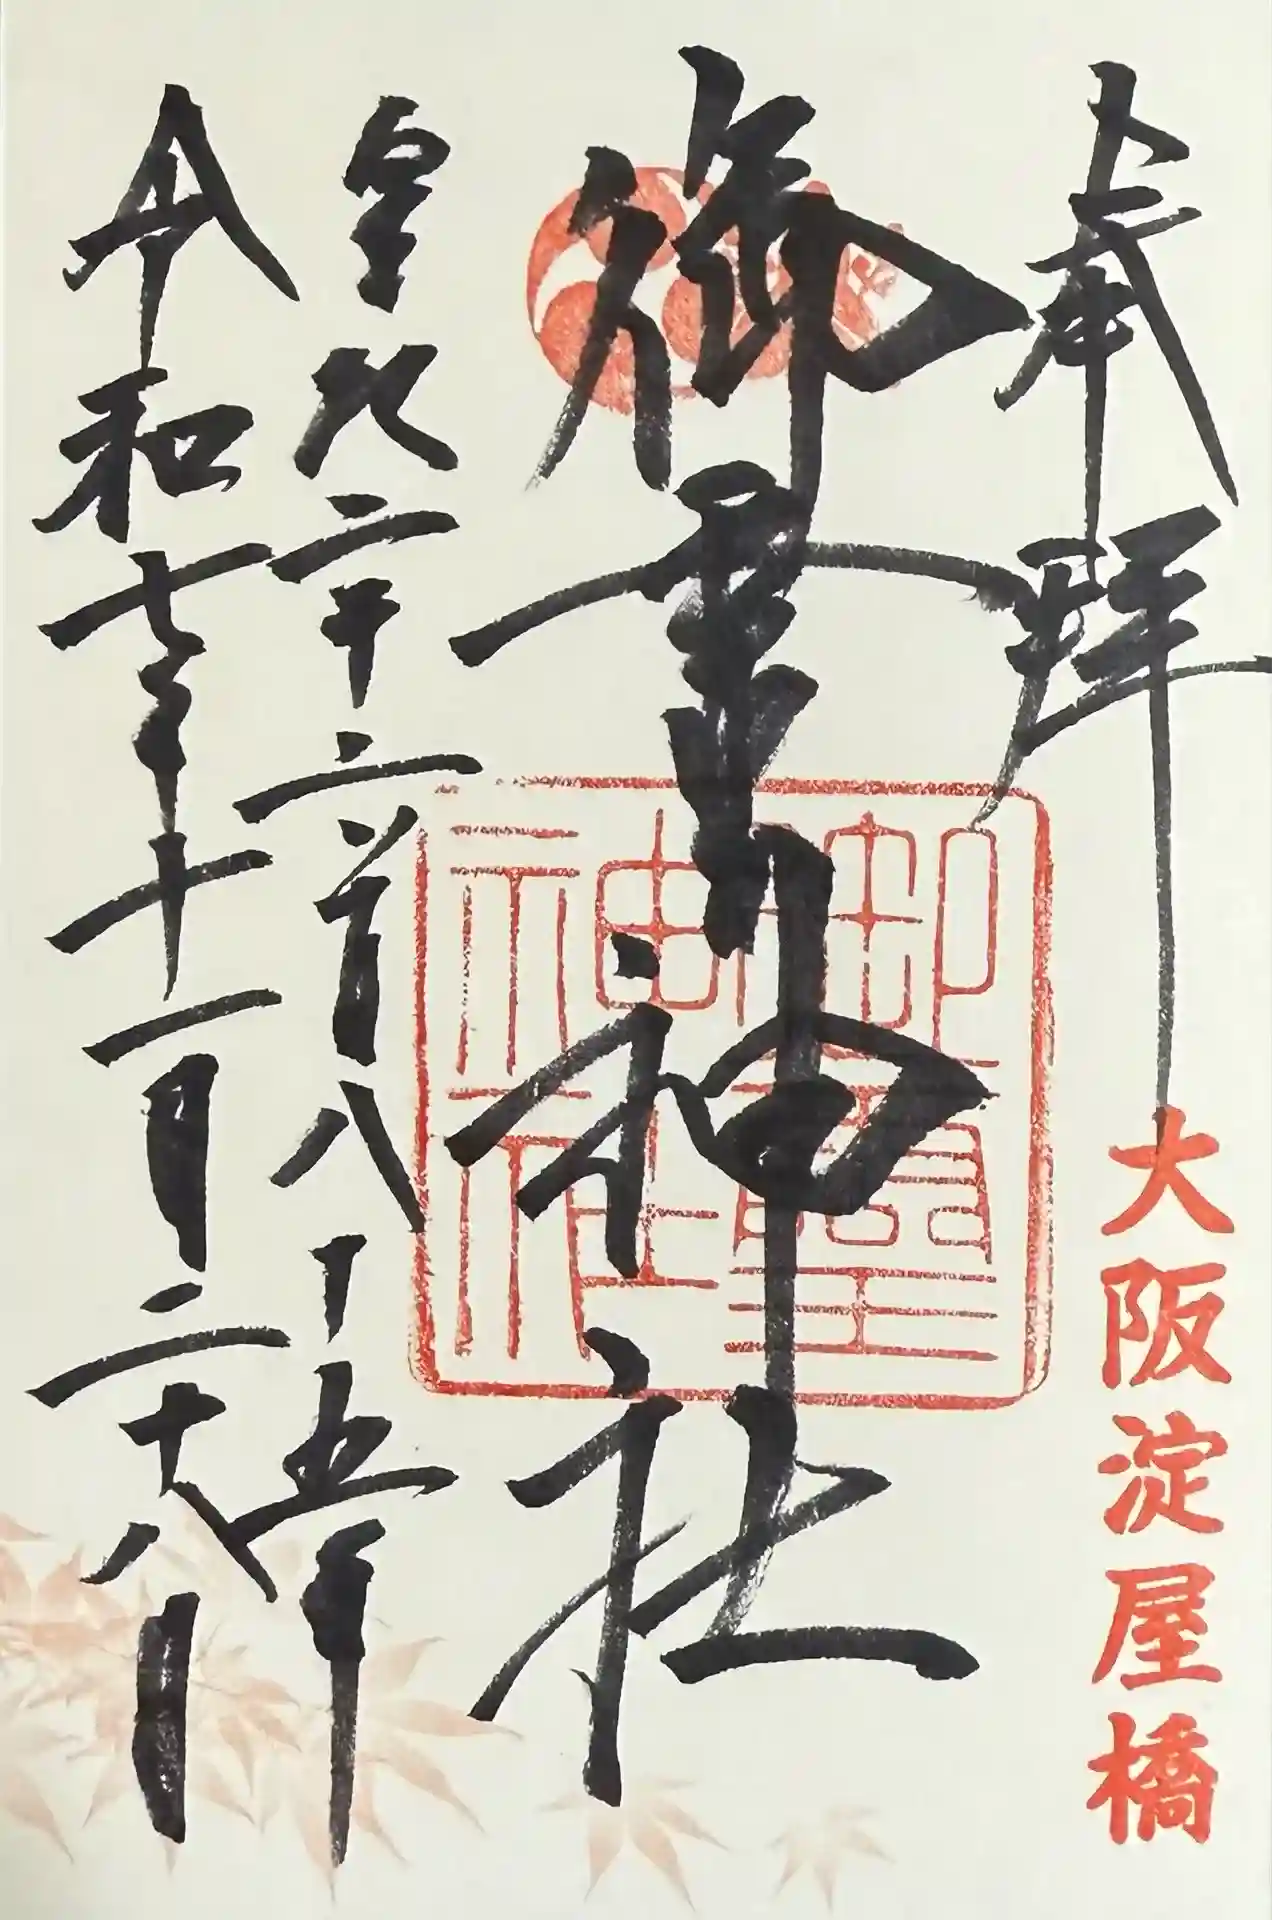 奉拝
大阪淀屋橋
御霊神社
御靈
神社
皇紀二千六百八十五年
令和七年十一月二十八日